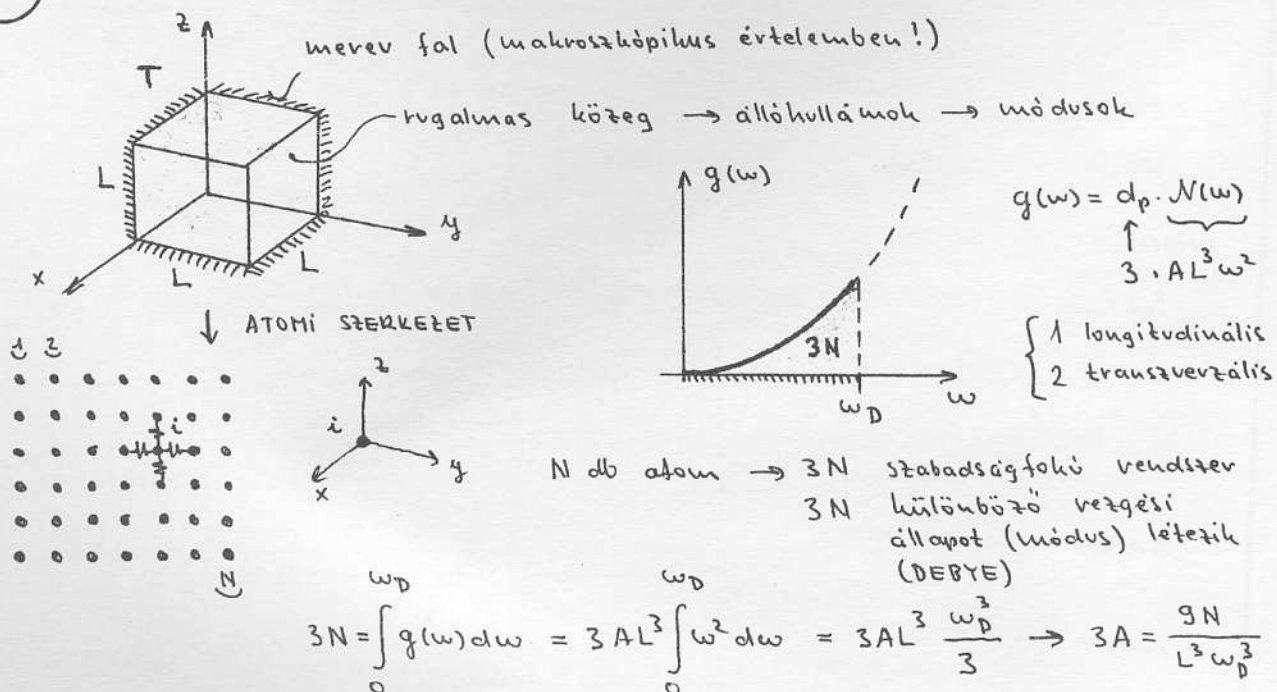 z
merev fal (makroszkópikus értelemben!)
T
rugalmas közeg → állóhullámok → módusok
L
g(ω)
g(ω) = d_p · N(ω)
↑
3 · AL³ω²
y
x
L
L
↓ ATOMI SZERKEZET
3N
ω_D
ω
{ 1 longitudinális
2 transzverzális
1 2
i
N
z
i
y
x
N db atom → 3N szabadságfokú rendszer
3N különböző rezgési
állapot (módus) létezik
(DEBYE)
3N = ∫₀^{ω_D} g(ω)dω = 3AL³ ∫₀^{ω_D} ω² dω = 3AL³ ω_D³/3 → 3A = 9N/(L³ω_D³)